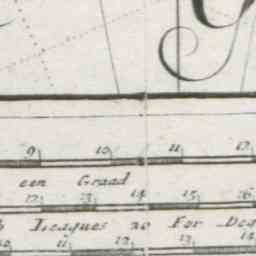 9 10 11 12
een Graad
12 13 14 15 16
Leagues 20 For Deg
10 11 12 13 14